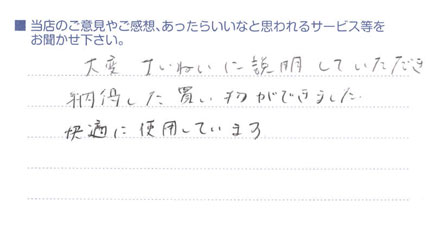 ■ 当店のご意見やご感想、あったらいいなと思われるサービス等を
お聞かせ下さい。
大変 ていねいに説明していただき
納得した買い物ができました
快適に使用しています